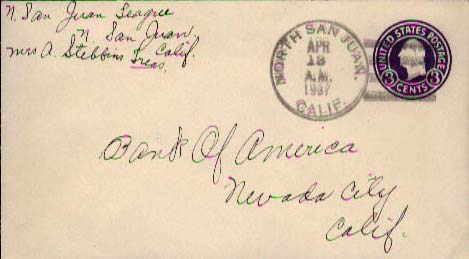 N. San Juan League
N. San Juan,
Calif.
Mrs A. Stebbins Treas.
NORTH SAN JUAN,
APR
18
A.M.
1937
CALIF.
UNITED STATES POSTAGE
3 CENTS 3
Bank Of America
Nevada City
Calif.